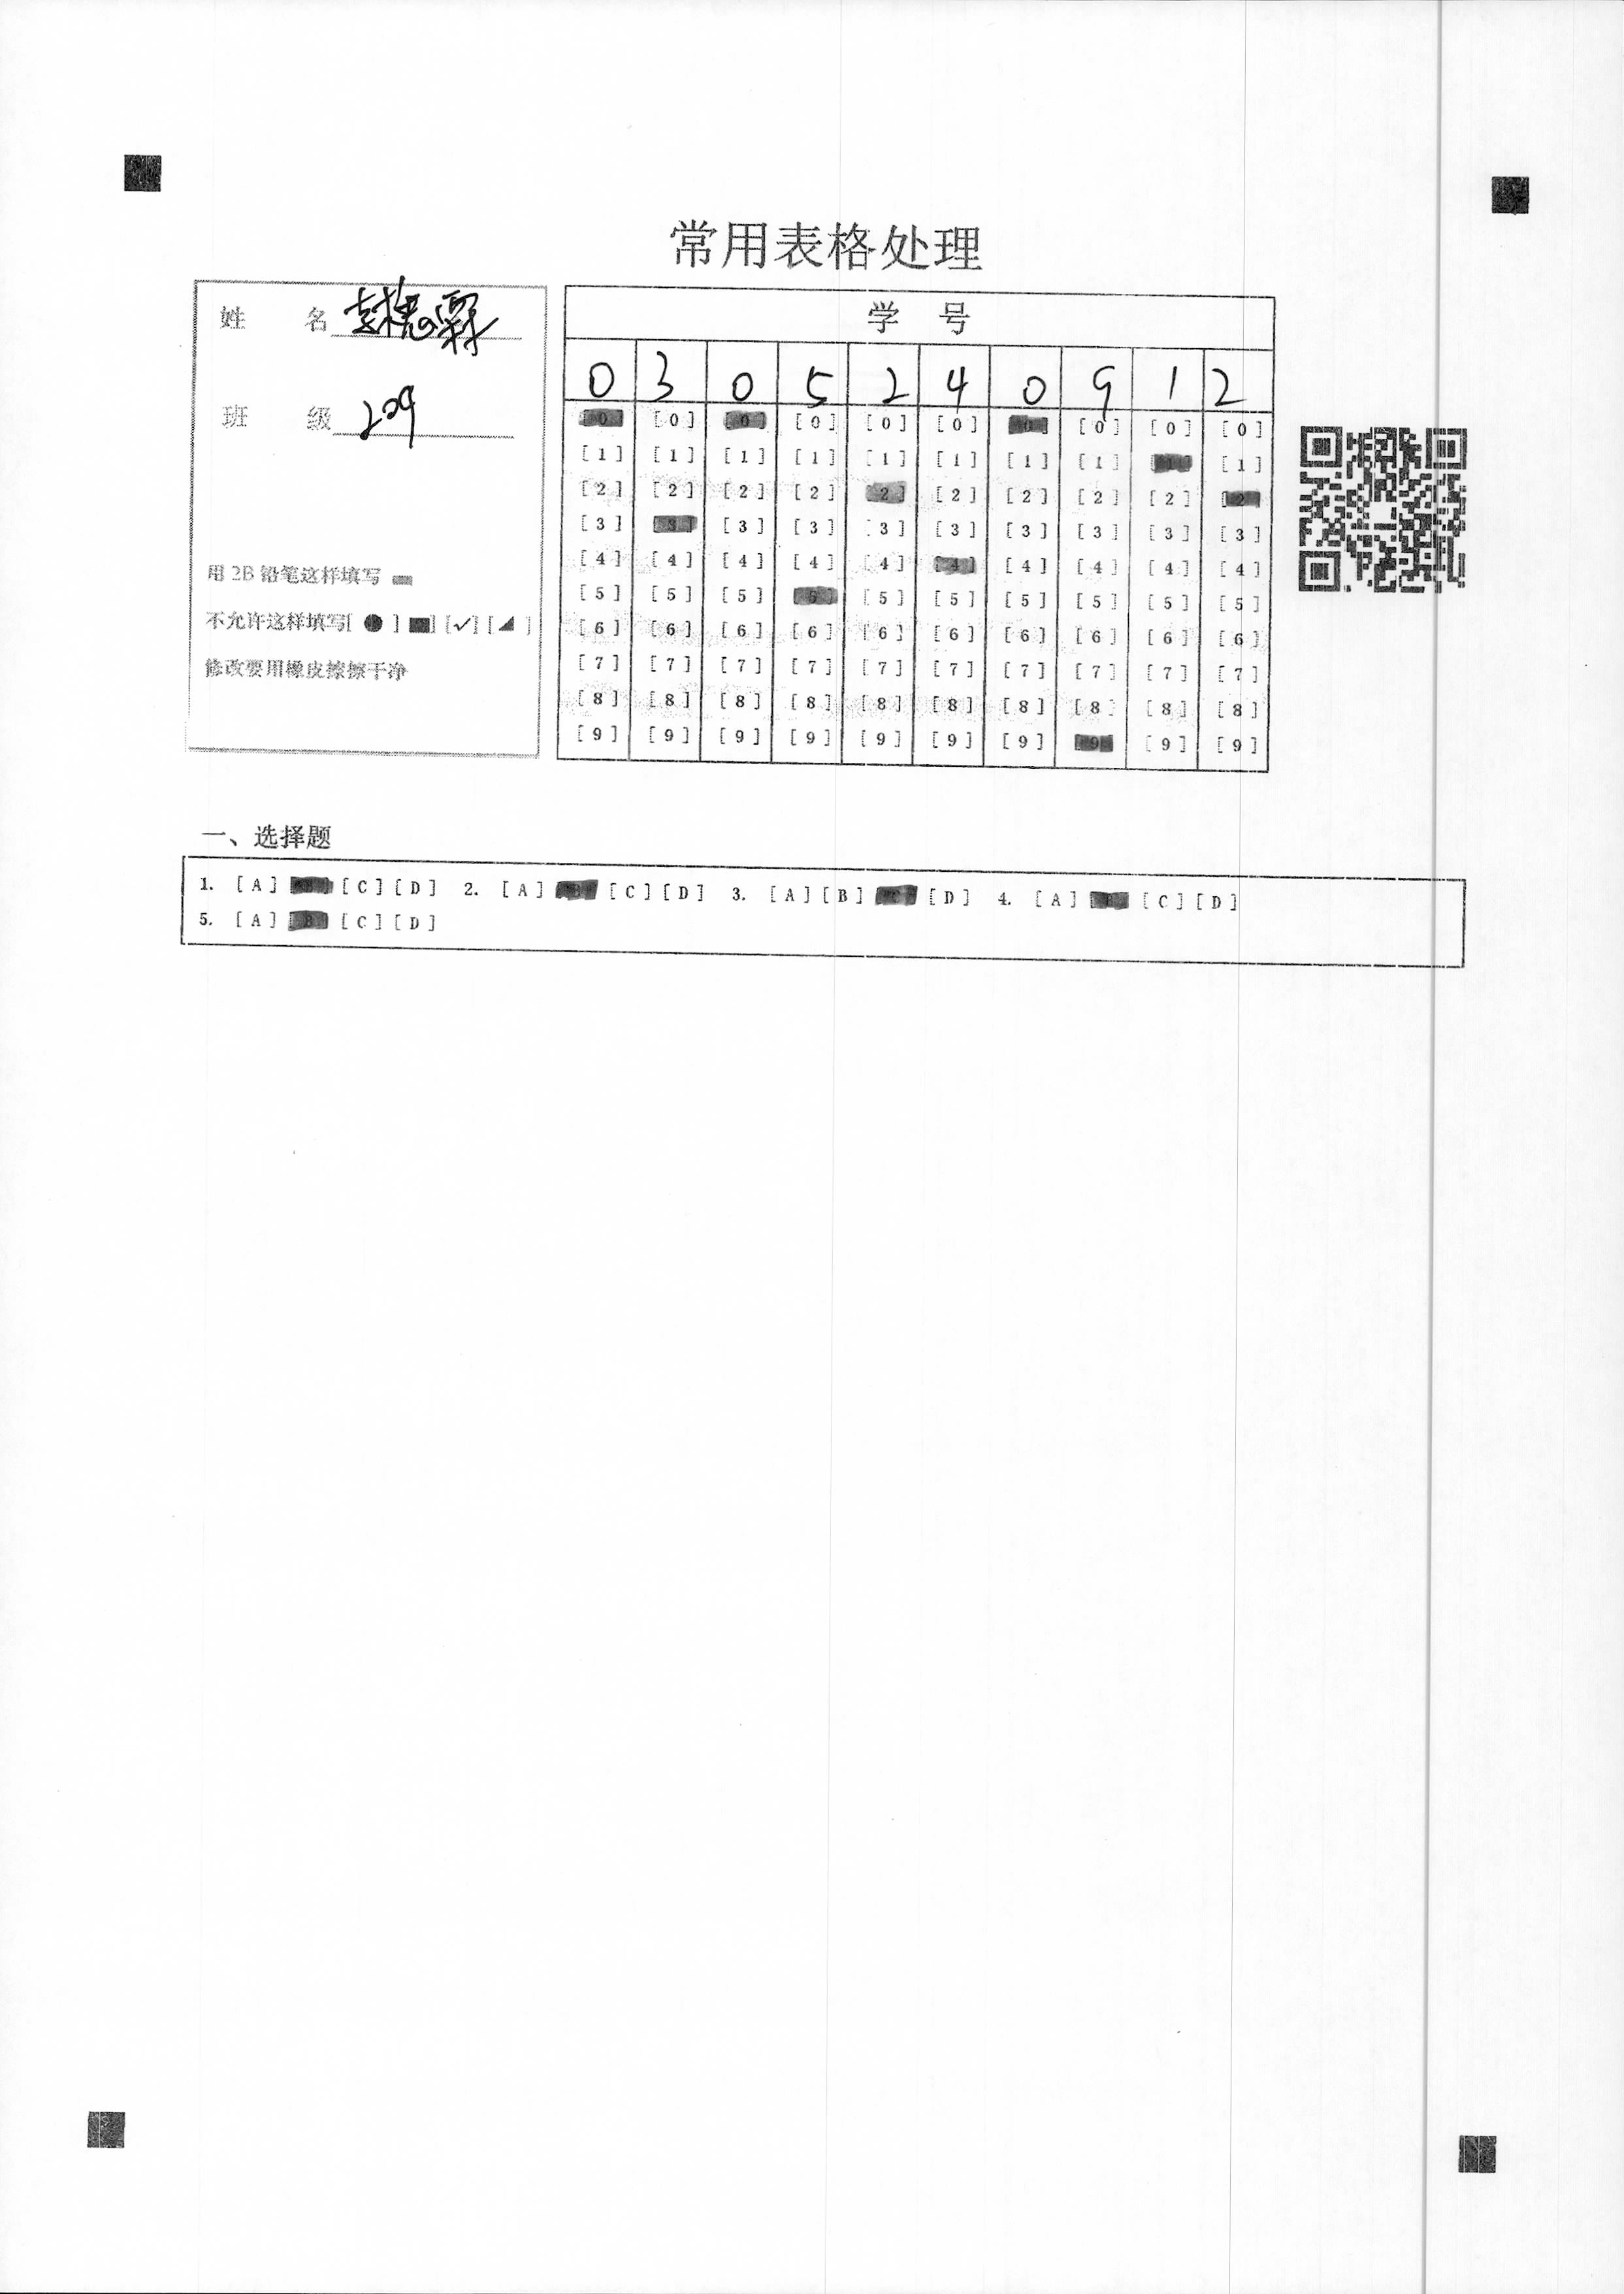 常用表格处理
姓 名
班 级 209
用 2B 铅笔这样填写
不允许这样填写[ ● ] [■] [✓] [◢ ]
修改要用橡皮擦擦干净
学 号
0 3 0 5 2 4 0 9 1 2
[0] [0] [0] [0] [0] [0] [0] [0] [0] [0]
[1] [1] [1] [1] [1] [1] [1] [1] [1] [1]
[2] [2] [2] [2] [2] [2] [2] [2] [2] [2]
[3] [3] [3] [3] [3] [3] [3] [3] [3] [3]
[4] [4] [4] [4] [4] [4] [4] [4] [4] [4]
[5] [5] [5] [5] [5] [5] [5] [5] [5] [5]
[6] [6] [6] [6] [6] [6] [6] [6] [6] [6]
[7] [7] [7] [7] [7] [7] [7] [7] [7] [7]
[8] [8] [8] [8] [8] [8] [8] [8] [8] [8]
[9] [9] [9] [9] [9] [9] [9] [9] [9] [9]
一、选择题
1. [A] [B] [C] [D] 2. [A] [B] [C] [D] 3. [A] [B] [C] [D] 4. [A] [B] [C] [D]
5. [A] [B] [C] [D]